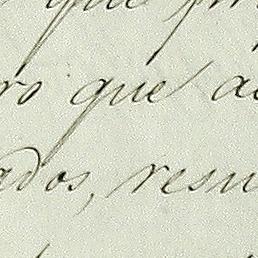 que
ro que a
ados, resu